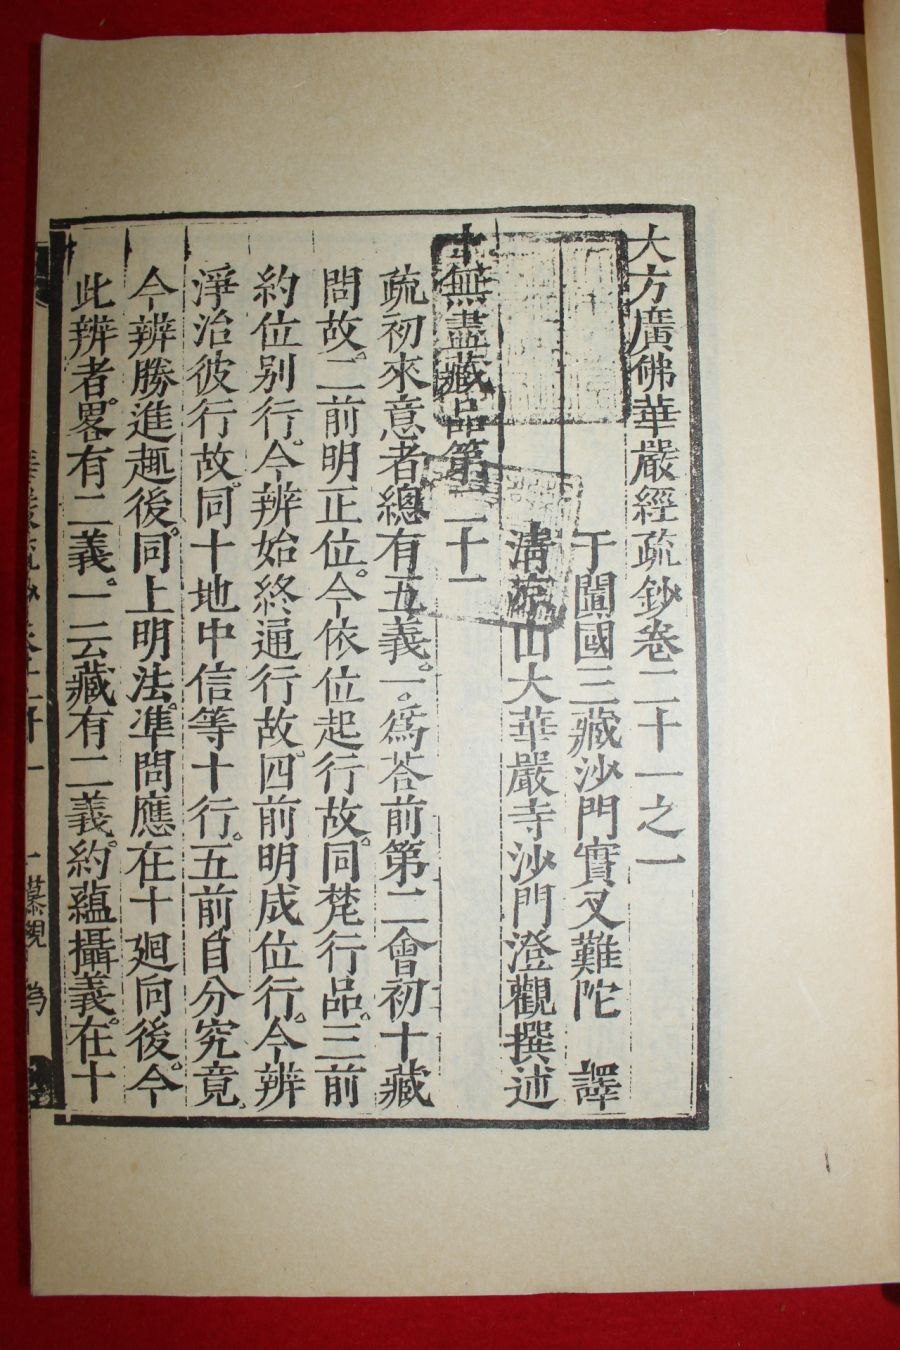 大方廣佛華嚴經疏鈔卷二十一之一
于闐國三藏沙門實叉難陀 譯
清涼山大華嚴寺沙門澄觀撰述
十無盡藏品第二十二
疏初來意者總有五義。一。爲荅前第二會初十藏
問故。二前明正位。今依位起行故。同梵行品。三前
約位别行。今辨始終通行故。四前明成位行。今辨
淨治彼行故。同十地中信等十行。五前自分究竟。
今辨勝進趣後。同上明法。準問應在十廻向後。今
此辨者。畧有二義。一云藏有二義。約蘊攝義。在十